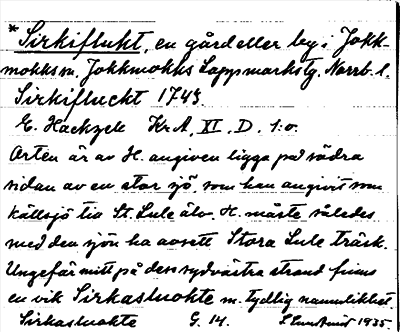 *Sirkiflukt, en gård eller by i Jokk-
mokks sn, Jokkmokks Lappmarks tg. Norrb. l.
Sirkifluckt 1745.
E. Hackzele Kr.A, XI. D. 1:0.
Orten är av H. angiven ligga på södra
sidan av en stor sjö, som han angivit som
källsjö till St. Lule älv. H. måste således
med den sjön ha avsett Stora Lule träsk.
Ungefär mitt på dess sydvästra strand finns
en vik Sirkasluokte m. tydlig namnlikhet.
Sirkasluokte G. 14. 1935.